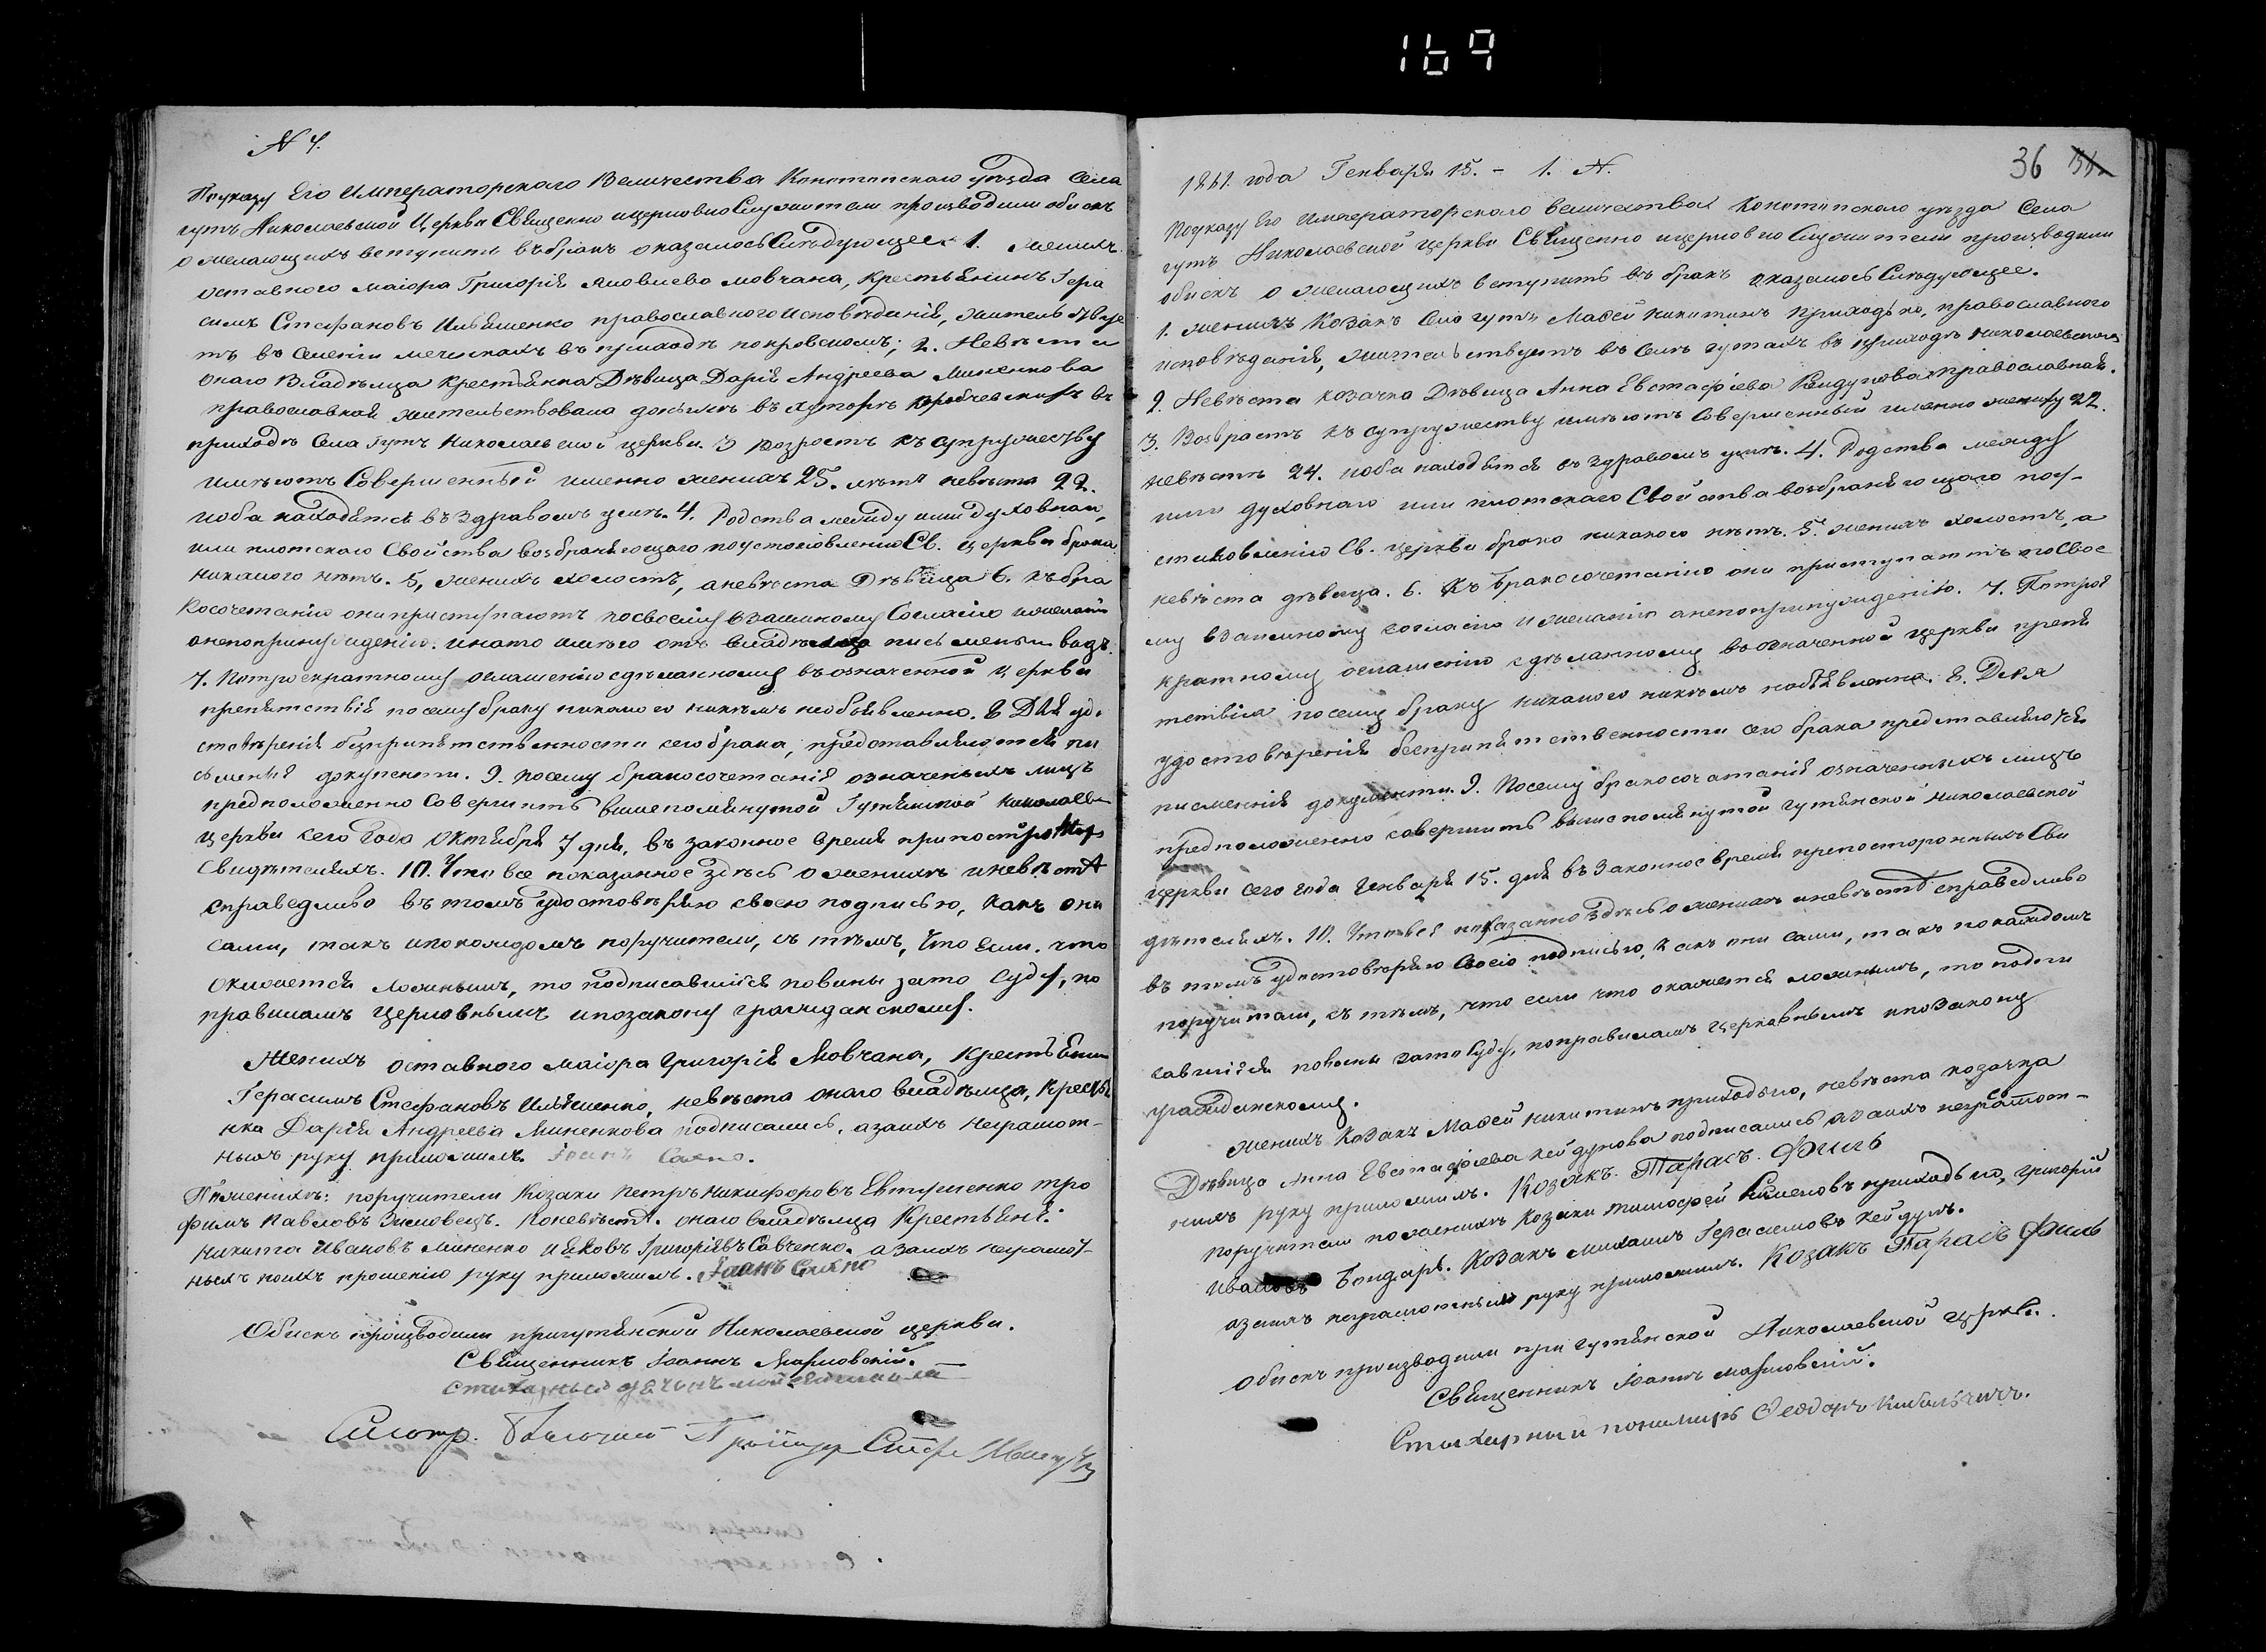 169
N 4.
По указу Его Императорскаго Величества Конотопскаго уѣзда Села
гутъ Николаевской Церкви Священно ицерковно Служители производили обискъ
о желающихъ вступить въ бракъ оказалось Слѣдующее. 1. женихъ
оставного маіора Григорія Яковлева мовчана, крестьянинъ Гера
симъ Стефановъ Ильяшенко православного исповѣданія, жительствуе
тъ въ селеніи въ приходѣ покровскомъ; 2. Невѣста
онаго владѣльца крестьянка Дѣвица Дарія Андреева Миненкова
православная жительствовала въ хуторѣ въ
приходѣ Села Гутъ Николаевской церкви. 3 возростъ къ супружеству
имѣютъ Совершенный именно женихъ 25. лѣтъ невѣста 22.
иоба находятся въ здравомъ умѣ. 4. Родства между ими духовнаго,
или плотскаго Свойства возбраняющаго поустановленію Св. Церкви брака
никакого нѣтъ. 5, женихъ холостъ, аневѣста Дѣвица 6. къ бра
косочетанію они приступаютъ посвоему взаимному Согласію ижеланію
анепопринужденію. инато имѣю отъ владѣльца письменый видъ.
7. Потроекратному оглашенію сдѣланному въ означенной церкви
препятствія посему браку никакого никѣмъ необъявленно. 8 Для удо
стовѣренія безпрепятственности сего брака, представляются пи
сьменія документи. 9. посему бракосочетанія означеныхъ лицъ
предположенно Совершить вишепомянутой Гутянской николаевс
церкви сего года Октября 7 дня, въ законное время при
Свидѣтеляхъ. 10. Что все показанное здѣсь о женихѣ иневѣстѣ
справедливо въ томъ удостовѣряю своею подписью, какъ они
сами, такъ ипокаждомъ поручители, съ тѣмъ, что если что
окажется ложнымъ, то подписавшіся повины зато суду, по
правиламъ церковнымъ ипозакону гражданскому.
Женихъ оставного маіора Григорія Мовчана, крестьяни
Герасимъ Стефановъ Ильяшенко, невѣста онаго владѣльца, крестья
нка Дарія Андреева Миненкова подписались, азаихъ неграмот-
ныхъ руку приложилъ. Іоанъ
Поженихѣ: поручители Козаки Петръ Никифоровъ Евтушенко тро
фимъ Павловъ Зимовецъ. Поневѣстѣ. онаго владѣльца Крестьяне:
никита Ивановъ Миненко иЯковъ Григоріевъ Савченко. азаихъ неграмот-
ныхъ поихъ прошенію руку приложилъ. Іоанъ
Обискъ производили пригутянской Николаевской церкви.
Священникъ Іоаннъ
Стихарный
36
1861. года Генваря 15. - 1. N.
Поуказу Его Императорскаго величества Конотопского уѣзда Села
гутъ Николаевской церкви Священно ицерковно Служители производили
обискъ о желающихъ вступить въ бракъ оказалось Слѣдующее.
1. женихъ Козакъ Села гутъ Мафей никитинъ Приходько, православного
исповѣданія, жительствуетъ въ Селѣ гутахъ въ приходѣ николаевскомъ
2. Невѣста козачка Дѣвица Анна Евстафіева православная.
3. Возврастъ къ супружеству имѣютъ Совершенный именно жениху 22.
невѣстѣ 24. иоба находятся въ здравомъ умѣ. 4. Родства между
ими духовнаго или плотскаго Свойства возбраняющаго поу-
становленію Св. Церкви брака никакого нѣтъ. 5. женихъ холостъ, а
невѣста дѣвица. 6. Къ бракосочетанію они приступаютъ посвое
му взаимному согласію ижеланію анепопринужденію. 7. Потрое
кратному оглашенію сдѣланному въ означенной церкви препя
тствія посему браку никакого никѣмъ 8. Для
удостовѣренія беспрепятственности сего брака представляются
писменія документи. 9. Посему бракосочетанія означенныхъ лицъ
предположенно совершить вышепомянутой гутянской николаевской
церкви сего года Генваря 15. дня въ Законное время припосторонныхъ Сви
дѣтеляхъ. 10. Что все показанно здѣсь о женихѣ иневѣстѣ справедливо
въ томъ удостовѣряю Своею подписью, какъ они сами, такъ покаждомъ
поручители, съ тѣмъ, что если что окажется ложнымъ, то подпи
савшіися повины зато Суду, поправиламъ церковнымъ ипоЗакону
гражданскому.
женихъ Козакъ Мафей никитинъ приходько, невѣста козачка
Дѣвица Анна Евстафіева подписались азаихъ неграмот-
нихъ руку приложилъ. Козакъ. Тарасъ. Филь
поручители поженихѣ Козаки тимофей приходько, григорій
Ивановъ Бондарь. Козакъ михаилъ Герасимовъ
азаихъ неграмотныхъ руку приложилъ. Козакъ Тарасъ Филь
Обискъ производили при гутянской Николаевской церкви.
Священникъ Іоаннъ
Стихарный понамарь Феодоръ Кибальчичъ.